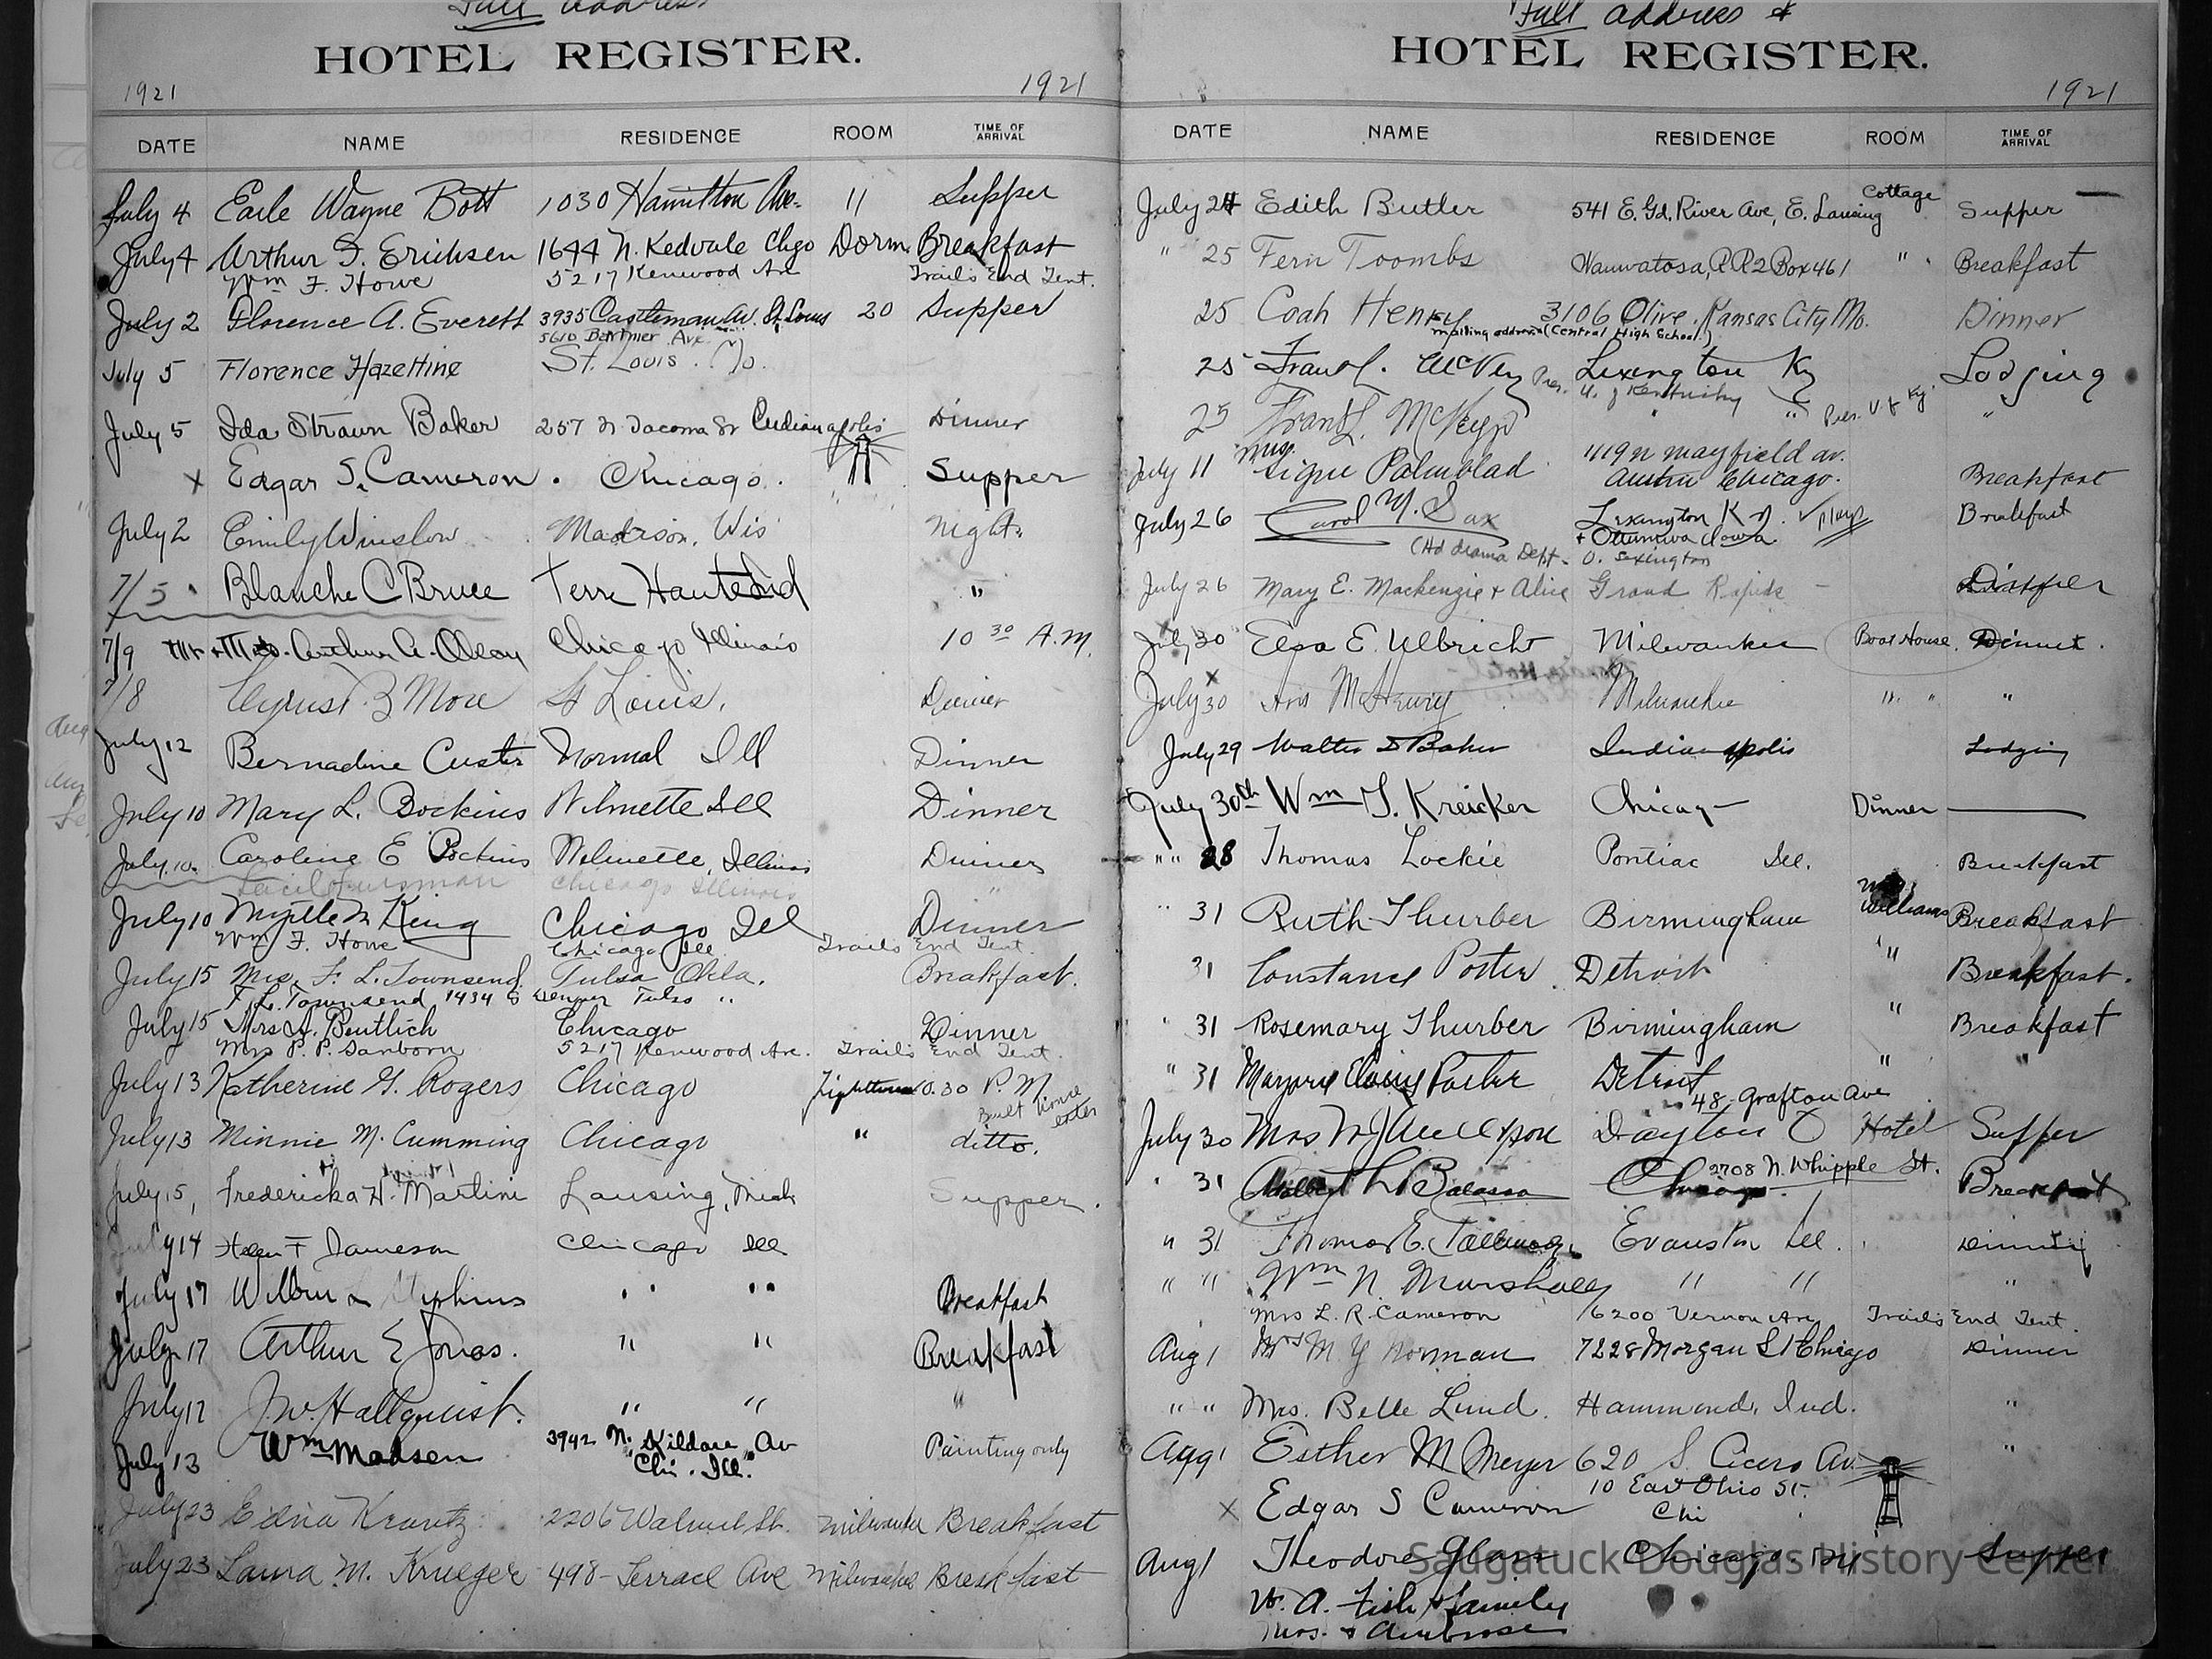 Full address
HOTEL REGISTER.
1921 1921
DATE NAME RESIDENCE ROOM TIME OF ARRIVAL
July 4 Earle Wayne Bott 1030 Hamilton Ave. 11 Supper
July 4 Arthur F. Erichsen 1644 N. Kedvale Chgo Dorm. Breakfast
Wm F. Howe 5217 Kenwood Av Trail's End Tent.
July 2 Florence A. Everett 3935 Castleman Av. St. Louis 20 Supper
5610 Bartmer Ave.
July 5 Florence Hazeltine St. Louis. Mo.
July 5 Ida Strawn Baker 257 N. Tacoma St Indianapolis Dinner
x Edgar S. Cameron. Chicago. Supper
July 2 Emily Winslow Madison, Wis night.
7/5 Blanche C Bruce Terre Haute Ind "
7/9 Mr + Mrs. Arthur A. Olson Chicago Illinois 10 30 A.M.
7/8 St Louis, Dinner
July 12 Bernadine Custer Normal Ill Dinner
July 10 Mary L. Bockius Wilmette Ill Dinner
July 10. Caroline E Bockius Wilmette, Illinois Dinner
Chicago Illinois "
July 10 Myrtle M King Chicago Ill Dinner
Wm F. Howe Chicago Ill Trails End Tent
July 15 Mrs. F. L. Townsend. Tulsa Okla. Breakfast.
F. L. Townsend 1434 S Denver Tulsa "
July 15 Mrs A. Bentlich Chicago Dinner
Mrs P. P. Sanborn 5217 Kenwood Ave. Trail's End Tent.
July 13 Katherine G. Rogers Chicago Lighthouse 10.30 P.M.
July 13 Minnie M. Cumming Chicago " ditto.
July 15, Fredericka H. Martini Lansing, Mich Supper.
July 14 Helen F Jameson Chicago Ill
July 17 Wilbur Stephens " " Breakfast
July 17 Arthur E Jonas. " " Breakfast
July 17 J.W. Hallquist. " " "
July 13 Wm Madsen 3942 N. Kildare Av Painting only
Chi. Ill.
July 23 Edna Krantz 2206 Walnut St. Milwaukee Breakfast
July 23 Laura M. Krueger 498 - Terrace Ave Milwaukee Breakfast
Full address &
HOTEL REGISTER.
1921
DATE NAME RESIDENCE ROOM TIME OF ARRIVAL
July 24 Edith Butler 541 E. Gd. River Ave, E. Lansing Cottage Supper
" 25 Fern Toombs Wauwatosa, R R 2 Box 461 " Breakfast
25 Coah Henry 3106 Olive. Kansas City Mo. Dinner
mailing address (Central High School.)
25 Frank L. McVey Pres. U. of Kentucky Lexington Ky Lodging
25 Frank L. McVey " " Pres. U of Ky. "
July 11 Mrs. Signe Palmblad 1119 N Mayfield av. Austin Chicago. Breakfast
July 26 Carol M. Sax Lexington Ky. Plays Breakfast
+ Ottumwa Iowa
(Hd drama Dept - U. Lexington
July 26 Mary E. Mackenzie + Alice Grand Rapids - Dinner
July 30 Elsa E. Ulbricht Milwaukee Boat House. Dinner.
July 30 Milwaukee " " "
July 29 Walter S Baker Indianapolis Lodging
July 30th Wm T. Kreicker Chicago Dinner
" " 28 Thomas Lockie Pontiac Ill. Breakfast
" 31 Ruth Thurber Birmingham Williams Breakfast
31 Constance Porter Detroit " Breakfast.
" 31 Rosemary Thurber Birmingham " Breakfast
" 31 Marjorie Porter Detroit " "
48 - Grafton Ave
July 30 Dayton O Hotel Supper
" 31 Chicago. 2708 N. Whipple St. Breakfast
" 31 Thomas E. Tallmadge Evanston Ill. Dinner
" " Wm N. Marshall " " "
Mrs L. R. Cameron 6200 Vernon Av Trails End Tent.
Aug 1 Mrs M Y Norman 7228 Morgan St Chicago Dinner
" " Mrs. Belle Lund. Hammond, Ind. "
Aug 1 Esther M Meyer 620 S. Cicero Av. "
x Edgar S Cameron 10 East Ohio St. Chi
Aug 1 Theodore Glass Chicago Supper
W. A. Fish & family
Mrs. & Ambrose
Saugatuck-Douglas History Center